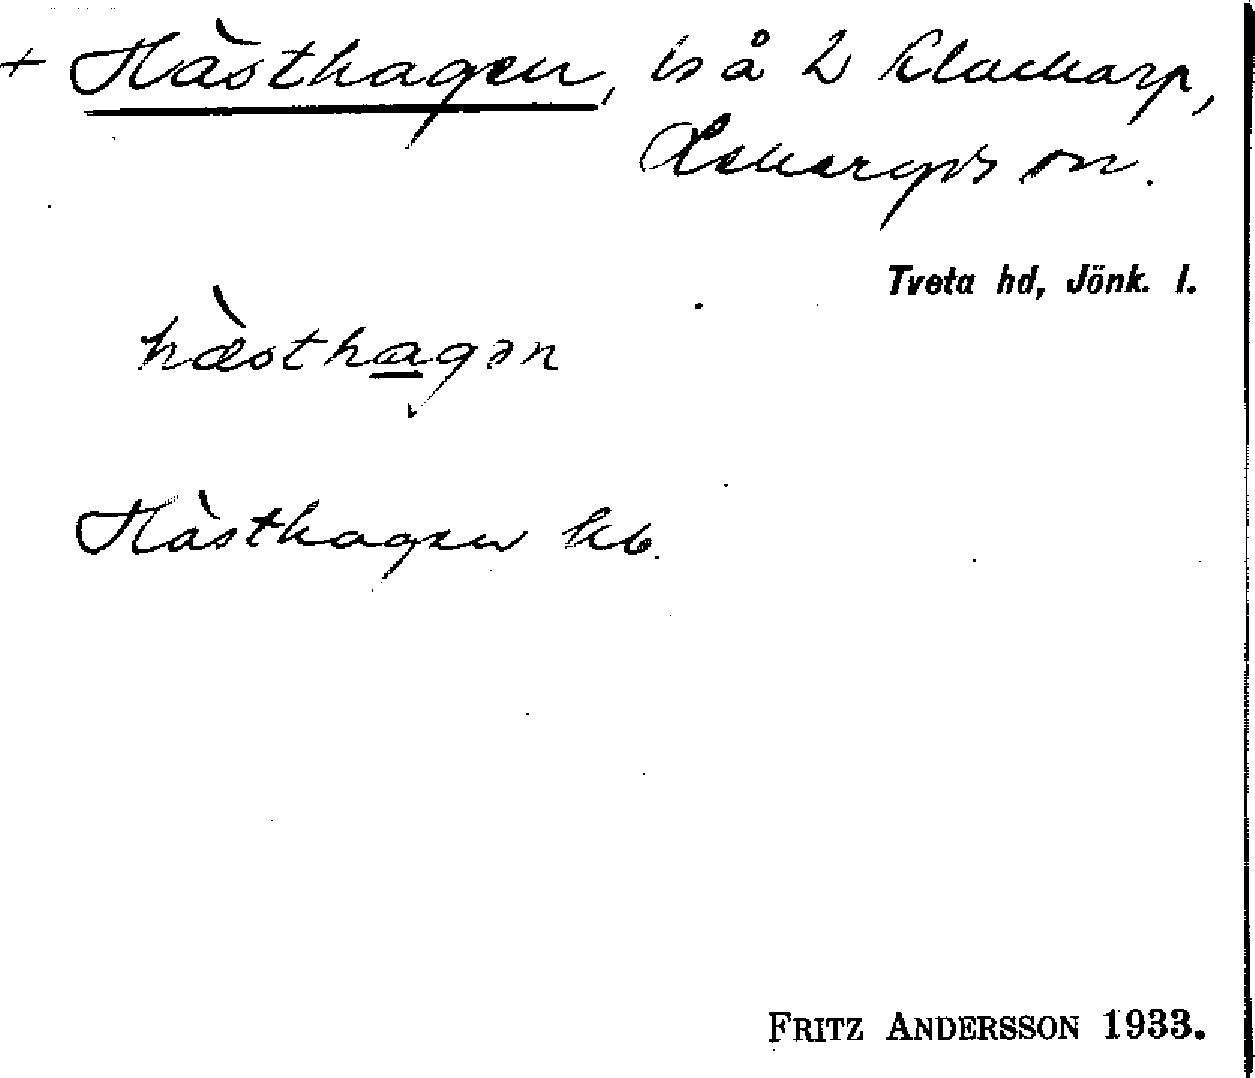 + Hästhagen, bs å L Klackarp,
Lekeryds sn.
Tveta hd, Jönk. l.
hæsthagən
Hästhagen kb.
FRITZ ANDERSSON 1933.